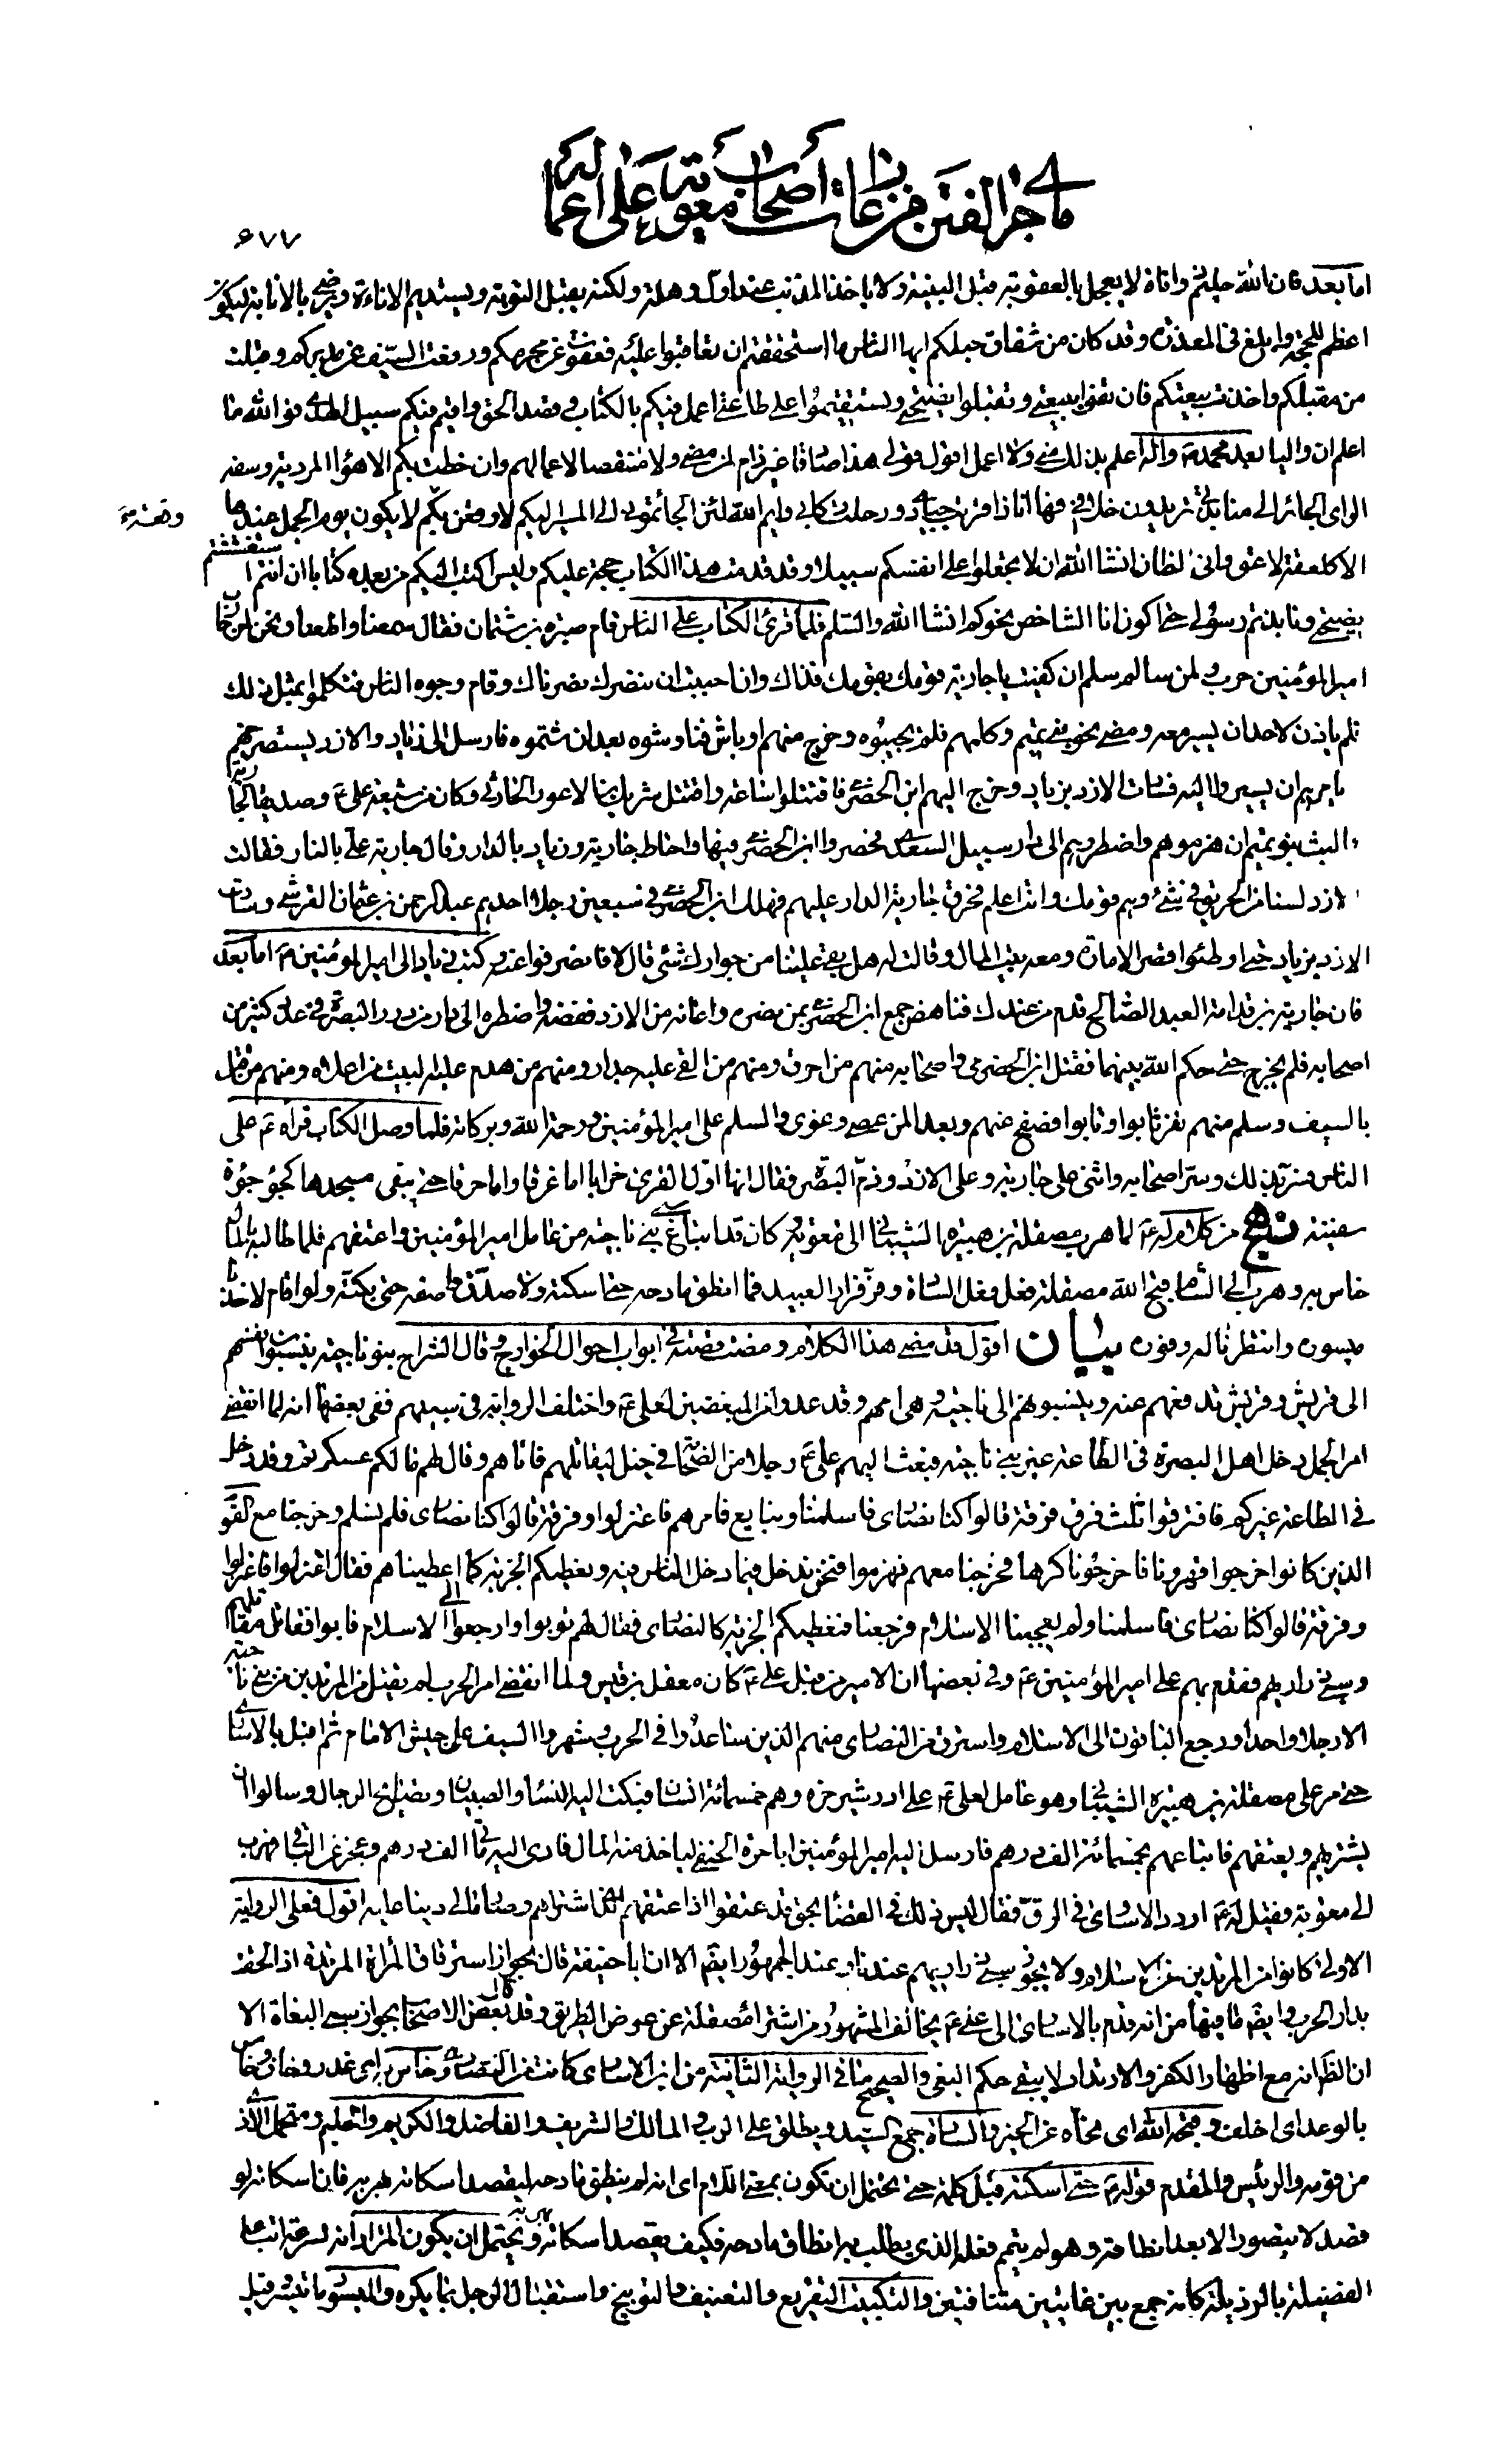 ما جرى من الفتن من غارات أصحاب معوية على اعماله
٦٧٧
اما بعد فان الله حليم ذو اناة لا يعجل بالعقوبة قبل البينة ولا ياخذ المذنب عند اول وهلة ولكنه يقبل التوبة ويستديم الاناءة ويرضى بالانابة ليكون
اعظم للحجة وابلغ فى المعذرة وقد كان من شقاق جلكم ايها الناس ما استحققتم ان تعاقبوا عليه فعفوت عن مجرمكم ورفعت السيف عن مدبركم وقبلت
من مقبلكم واخذت بيعتكم فان تفوا ببيعتى وتقبلوا نصيحتى وتستقيموا على طاعتى اعمل فيكم بالكتاب وقصد الحق واقيم فيكم سبيل الهدى فوالله ما
اعلم ان واليا بعد محمد ص واله اعلم بذلك منى ولا اعمل اقول قولى هذا صادقا غير ذام لمن مضى ولا منتقصا لاعمالهم وان خطت بكم الاهواء المردية وسفه
الراى الجائر الى منابذتى تريدون خلافى فها انا ذا قربت جيادى ورحلت ركابى وايم الله لئن الجأتمونى الى المسير اليكم لاوقعن بكم لا يكون يوم الجمل عندها
وقعة مة
الا كلعقة لاعق وانى لظان انشا الله ان لا تجعلوا على انفسكم سبيلا وقد قدمت هذا الكتاب حجة عليكم وليس اكتب اليكم من بعده كتابا ان انتم استغششتم
نصيحتى ونابذتم رسولى حتى اكون انا الشاخص نحوكم انشا الله والسلم فلما قرئ الكتاب على الناس قام صبرة بن شيمان فقال سمعنا واطعنا ونحن لمن حارب
امير المؤمنين حرب ولمن سالم سلم ان كفيت يا جارية قومك بقومك فذاك وان احببت ان ننصرك نصرناك وقام وجوه الناس فتكلموا بمثل ذلك
فلم ياذن لاحد ان يسير معه ومضى نحو بنى تميم وكلمهم فلم يجيبوه وخرج منهم اوباش فناوشوه بعد ان شتموه فارسل الى زياد والازد يستصرخهم
يامرهم ان يسيروا اليه فسارت الازد بزياد وخرج اليهم ابن الحضرمى فاقتتلوا ساعة واقتتل شريك بن الاعور الحارثى وكان من شيعة على ع وصديقا لجارية
البث بنو تميم ان هزموهم واضطروهم الى دار سبيل السعدى فحصروا ابن الحضرمى فيها واحاط جارية وزياد بالدار وقال جارية على بالنار فقالت
لازد لسنا من الحريق فى شئ وهم قومك وانت اعلم فحرق جارية الدار عليهم فهلك ابن الحضرمى فى سبعين رجلا احدهم عبد الرحمن بن عثمان القرشى وسارت
الازد بزياد حتى اوطئوا قصر الامارة ومعه بيت المال وقالت له هل بقى علينا من جوارك شئ قال لا فانصرفوا عنه وكتب زياد الى امير المؤمنين ع اما بعد
فان جارية بن قدامة العبد الصالح قدم من عندك فناهض جمع ابن الحضرمى بمن نصره واعانه من الازد ففضه واضطره الى دار من دور البصرة فى عدد كثير من
اصحابه فلم يخرج حتى حكم الله بينهما فقتل ابن الحضرمى واصحابه منهم من احرق ومنهم من القى عليه جدار ومنهم من هدم عليه البيت من اعلاه ومنهم من قتل
بالسيف وسلم منهم نفر ثابوا وتابوا فصفح عنهم وبعدا لمن عصى وغوى والسلم على امير المؤمنين ورحمة الله وبركاته فلما وصل الكتاب قرأه ع على
الناس فسر بذلك وسر اصحابه واثنى على جارية وعلى الازد وذم البصرة فقال انها اول القرى خرابا اما غرقا واما حرقا حتى يبقى مسجدها كجؤجؤة
سفينة نهج من كلام له ع لما هرب مصقلة بن هبيرة الشيبانى الى معوية وكان قد ابتاع سبى بنى ناجية من عامل امير المؤمنين واعتقهم فلما طالبه بالمال
خاس به وهرب الى الشام قبح الله مصقلة فعل فعل السادة وفر فرار العبيد فما انطق مادحه حتى اسكته ولا صدق واصفه حتى بكته ولو اقام لاخذنا
ميسوره وانتظرنا له وفوره بيان اقول قد مضى هذا الكلام ومضت قصته فى ابواب احوال الخوارج وقال الشراح بنو ناجية ينسبون انفسهم
الى قريش وقريش تدفعهم عنه وينسبونهم الى ناجية وهى امهم وقد عدوا من المبغضين لعلى ع واختلف الرواية فى سبيهم ففى بعضها انه لما انقضى
امر الجمل دخل اهل البصرة فى الطاعة غير بنى ناجية فبعث اليهم على ع رجلا من الصحابة فى خيل ليقاتلهم فاتاهم وقال لهم ما لكم عسكرتم وقد دخل
فى الطاعة غيركم فافترقوا ثلث فرق فرقة قالوا كنا نصارى فاسلمنا ونبايع فامرهم فاعتزلوا وفرقة قالوا كنا نصارى فلم نسلم وخرجنا مع القوم
الذين كانوا خرجوا قهرونا فاخرجونا كرها فخرجنا معهم فهزموا فنحن ندخل فيما دخل الناس فيه ونعطيكم الجزية كما اعطيناهم فقال اعتزلوا فاعتزلوا
وفرقة قالوا كنا نصارى فاسلمنا ولم يعجبنا الاسلام فرجعنا فنعطيكم الجزية كالنصارى فقال لهم توبوا وارجعوا الى الاسلام فابوا فقاتل مقاتلهم
وسبى ذراريهم فقدم بهم على امير المؤمنين ع وفى بعضها ان الامير من قبل على ع كان معقل بن قيس ولما انقضى امر الحرب لم يقتل من المرتدين من بنى ناجية
الا رجلا واحدا ورجع الباقون الى الاسلام واسترق من النصارى منهم الذين ساعدوا فى الحرب وشهروا السيف على جيش الامام ثم اقبل بالاسارى
حتى مر على مصقلة بن هبيرة الشيبانى وهو عامل لعلى ع على اردشير خرة وهم خمسمائة انسان فبكت اليه النساء والصبيان وتصايح الرجال وسالوا ان
يشتريهم ويعتقهم فابتاعهم بخمسمائة الف درهم فارسل اليه امير المؤمنين ابا حرة الحنفى لياخذ منه المال فادى اليه مأتى الف درهم وعجز عن الباقى فهرب
الى معوية فقيل له ع اردد الاسارى فى الرق فقال ليس ذلك فى القضاء بحق قد عتقوا اذ اعتقهم الذى اشتراهم وصار مالى دينا عليه اقول فعلى الرواية
الاولى كانوا من المرتدين عن الاسلام ولا يجوز سبى ذراريهم عندنا وعند الجمهور ايضا الا ان ابا حنيفة قال بجواز استرقاق المرأة المرتدة اذا لحقت
بدار الحرب وايضا ما فيها من انه قدم بالاسارى الى على ع يخالف المشهور من اشتراء مصقلة عن عرض الطريق وقد قال بعض الاصحاب بجواز سبى البغاة الا
ان الظ انه مع اظهار الكفر والارتداد لا يبقى حكم البغى والصحيح ما فى الرواية الثانية من ان الاسارى كانت من النصارى وخاس به اى غدر وخان وخاس
بالوعد اى اخلف وقبحه الله اى نحاه عن الخير والسادة جمع السيد ويطلق على الرب والمالك والشريف والفاضل والكريم والحليم ومتحمل الاذى
من قومه والرئيس والمقدم قوله ع حتى اسكته قيل كلمة حتى تحتمل ان تكون بمعنى اللام اى انه لم ينطق مادحه ليقصد اسكاته بهربه فان اسكاته لو
قصد لا يتصور الا بعد انطاقه وهو لم يتم فعله الذى يطلب به انطاق مادحه فكيف يقصد اسكاته بهربه ويحتمل ان يكون المراد انه لسرعة اتباعه
الفضيلة بالرذيلة كانه جمع بين غايتين متنافيتين والتبكيت التقريع والتعنيف والتوبيخ واستقبال الرجل بما يكره والميسور ما تيسر قيل